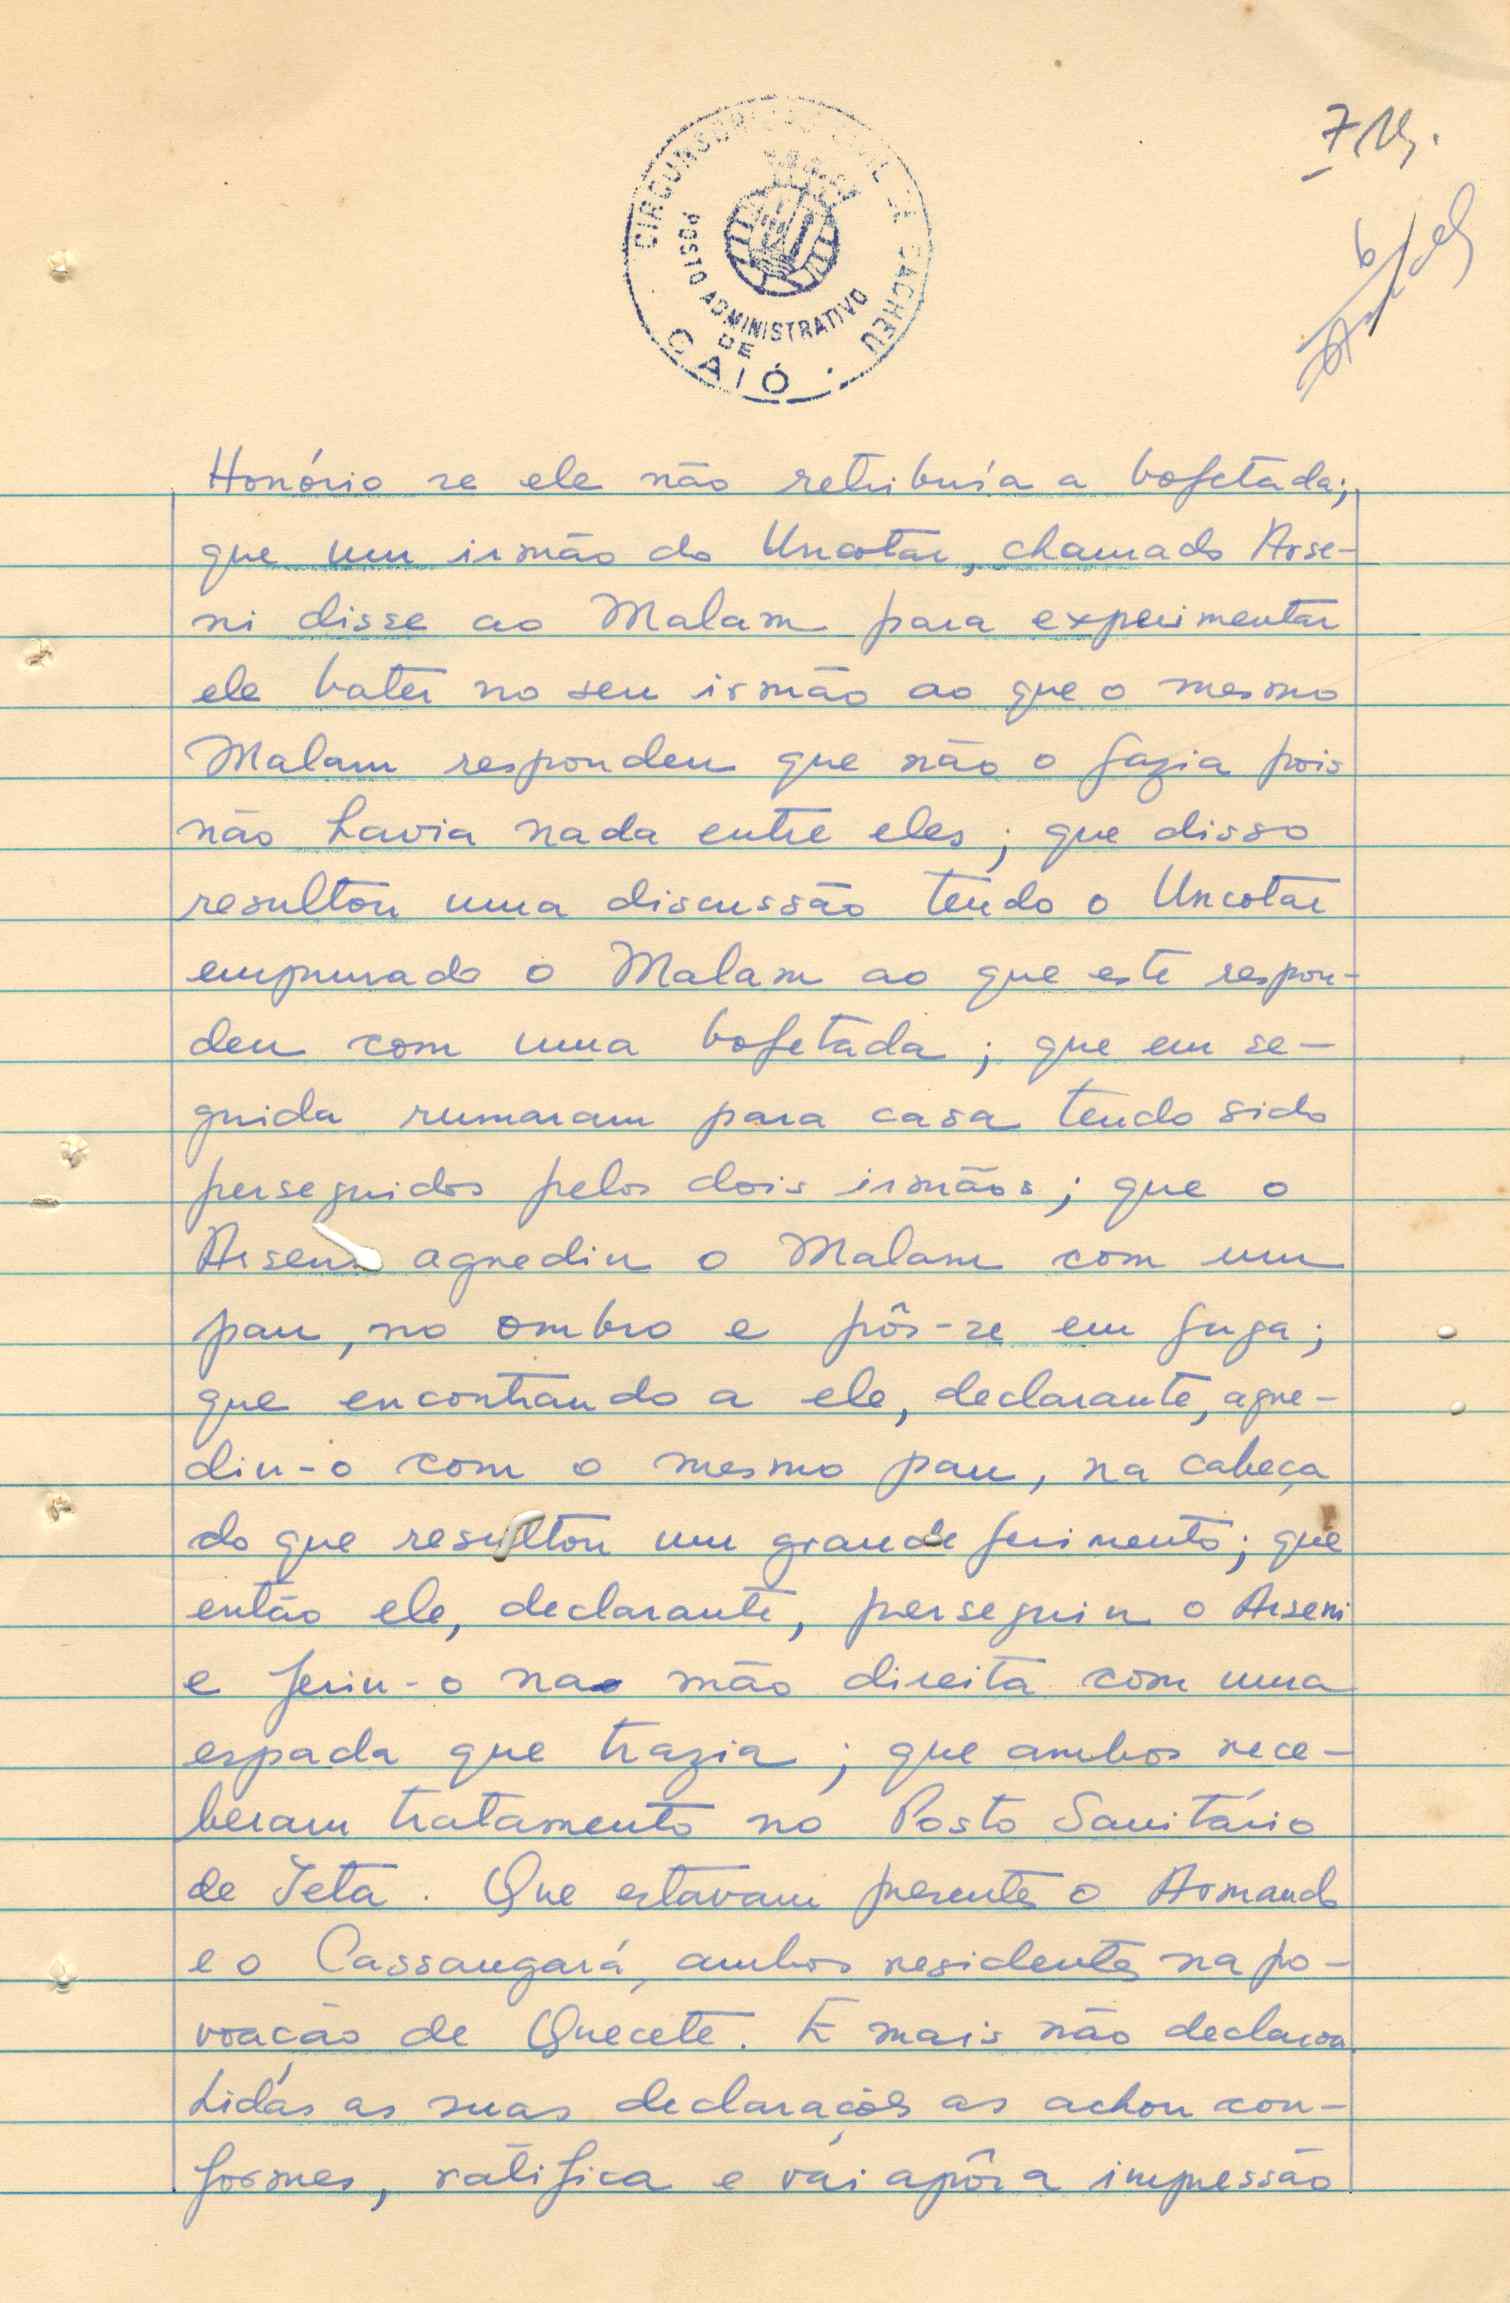 CIRCUNSCRIÇÃO CIVIL DE CACHEU
POSTO ADMINISTRATIVO
DE
CAIÓ
7
6
Honório se ele não retribuía a bofetada;
que um irmão do Uncotar, chamado Arse-
ni disse ao Malam para experimentar
ele bater no seu irmão ao que o mesmo
Malam respondeu que não o fazia pois
não havia nada entre eles; que disso
resultou uma discussão tendo o Uncotar
empurrado o Malam ao que este respon-
deu com uma bofetada; que em se-
guida rumaram para casa tendo sido
perseguidos pelos dois irmãos; que o
Arseni agrediu o Malam com um
pau, no ombro e pôs-se em fuga;
que encontrando a ele, declarante, agre-
diu-o com o mesmo pau, na cabeça
do que resultou um grande ferimento; que
então ele, declarante, perseguiu o Arseni
e feriu-o na mão direita com uma
espada que trazia; que ambos rece-
beram tratamento no Posto Sanitário
de Jeta. Que estavam presentes o Armando
e o Cassangará, ambos residentes na po-
voação de Quecete. E mais não declarou.
Lidas as suas declarações as achou con-
formes, ratifica e vai apôr a impressão